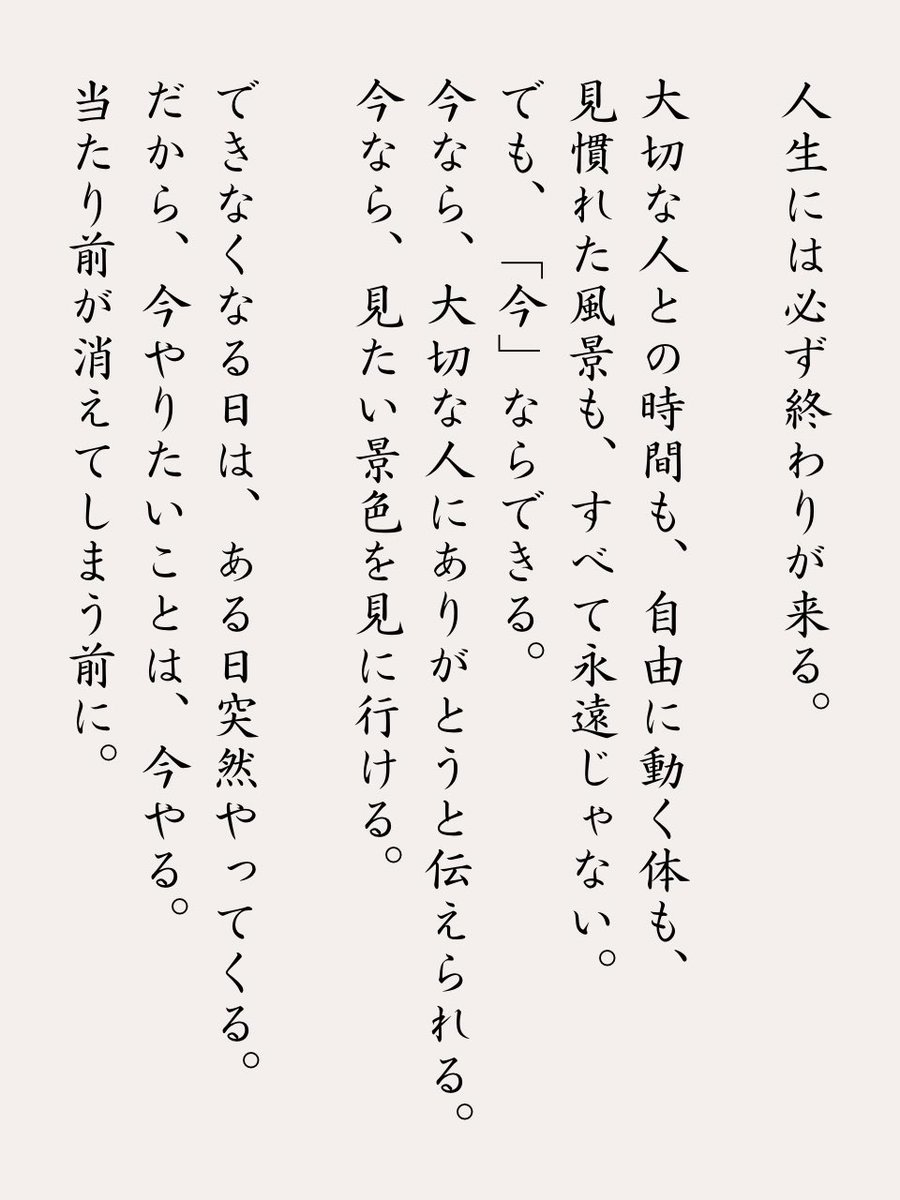 人生には必ず終わりが来る。
大切な人との時間も、自由に動く体も、
見慣れた風景も、すべて永遠じゃない。
でも、「今」ならできる。
今なら、大切な人にありがとうと伝えられる。
今なら、見たい景色を見に行ける。
できなくなる日は、ある日突然やってくる。
だから、今やりたいことは、今やる。
当たり前が消えてしまう前に。